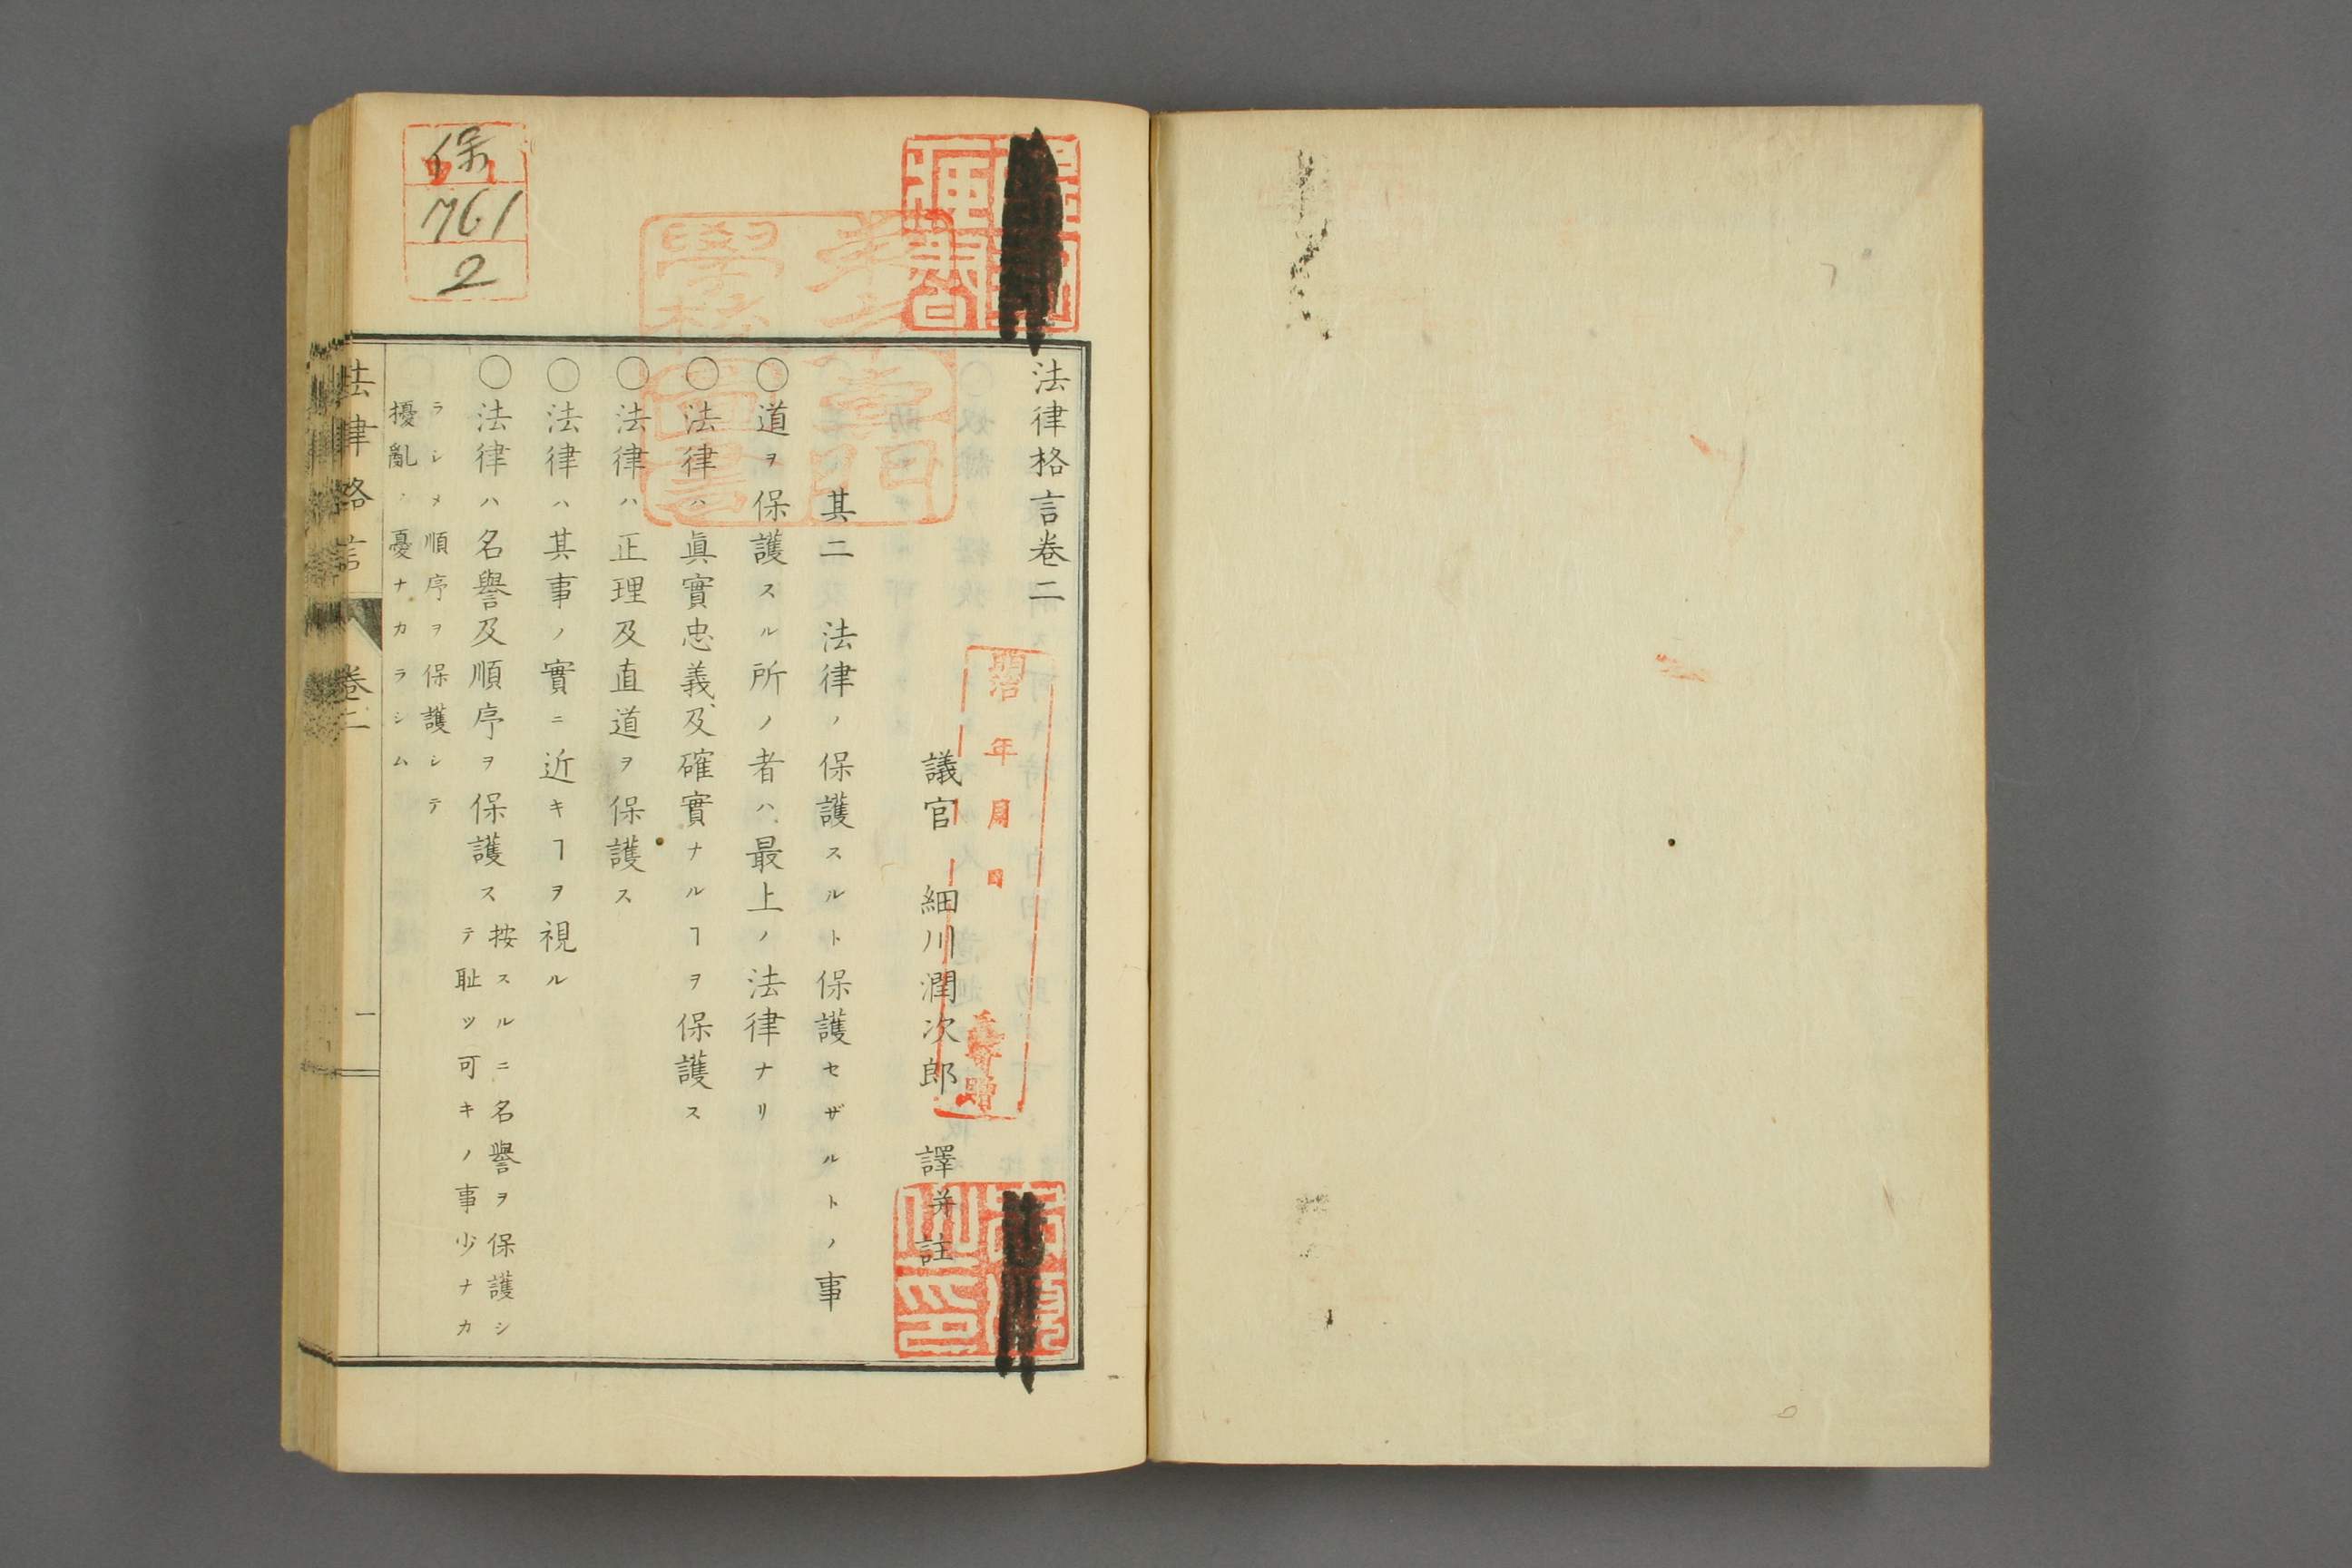 法律格言卷二
議官 細川潤次郎 譯并註
其二 法律ノ保護スルト保護セザルトノ事
○道ヲ保護スル所ノ者ハ最上ノ法律ナリ
○法律ハ眞實忠義及確實ナルヿヲ保護ス
○法律ハ正理及直道ヲ保護ス
○法律ハ其事ノ實ニ近キヿヲ視ル
○法律ハ名譽及順序ヲ保護ス
按スルニ名譽ヲ保護シ
テ耻ツ可キノ事少ナカ
ラシメ順序ヲ保護シテ
擾亂ノ憂ナカラシム
法律格言 卷二 一
保
761
2
明治 年 月 日
寄贈